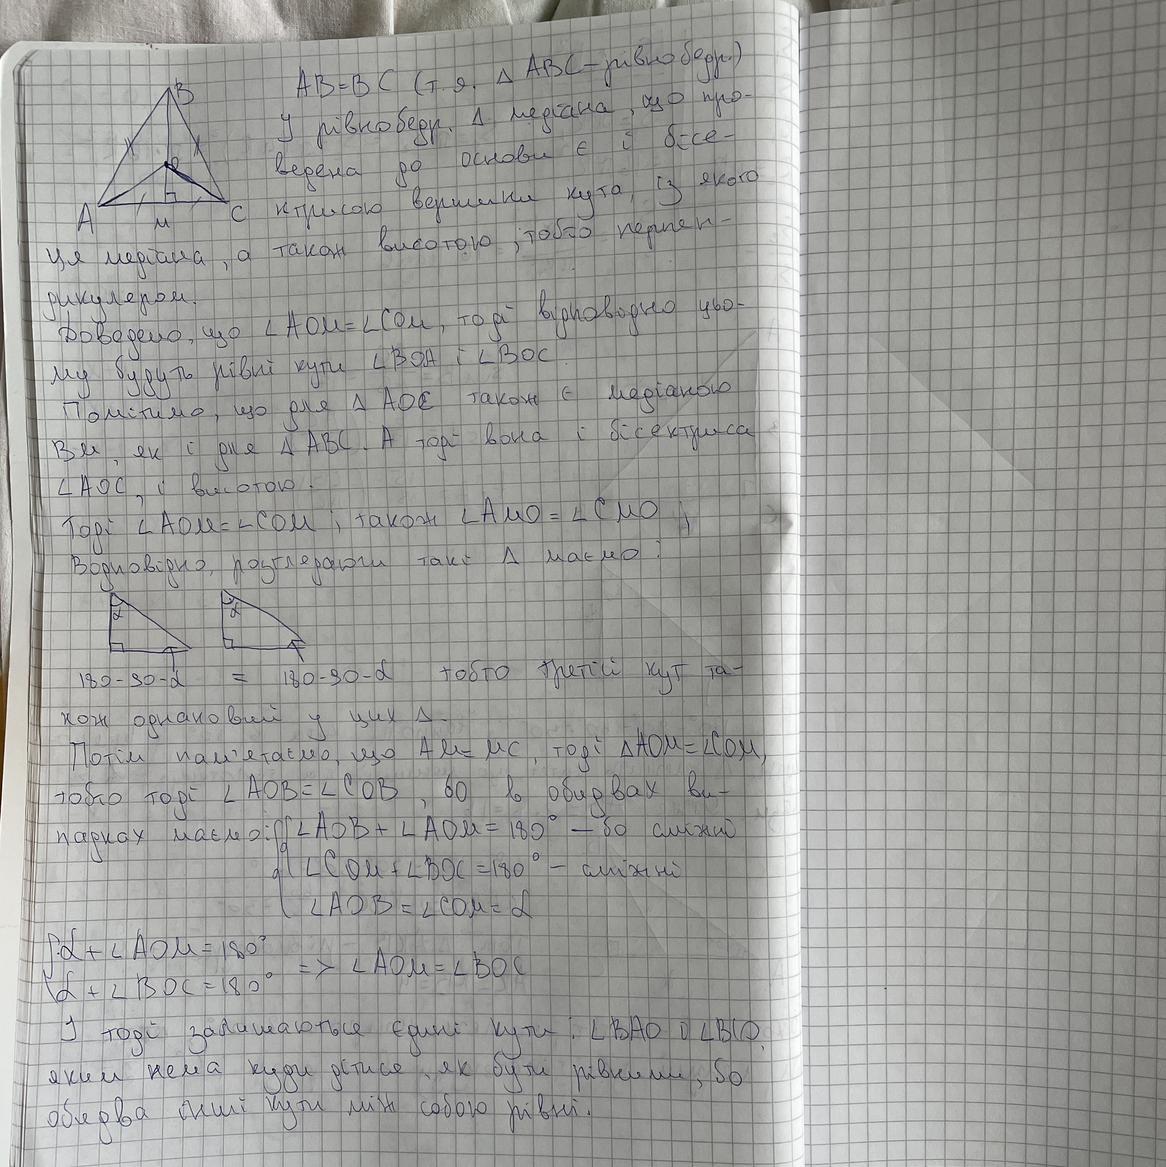 B
A
M
C
O
AB=BC (т.я. Δ ABC-рівнобедр.)
У рівнобедр. Δ медіана, що про-
ведена до основи є і бісе-
ктрисою вершини кута, із якого
ця медіана, а також висотою, тобто перпен-
дикулером.
Доведемо, що ∠AOM=∠COM, тоді відповідно цьо-
му будуть рівні кути ∠BOA і ∠BOC
Помітимо, що для Δ AOC також є медіаною
BM, як і для Δ ABC. А тоді вона і бісектриса
∠AOC, і висотою.
Тоді ∠AOM=∠COM ; також ∠AMO=∠CMO ;
Водповідно, розгледаючи такі Δ маємо:
α
α
180-90-α = 180-90-α тобто третій кут та-
кож однаковий у цих Δ.
Потім пам'етаємо, що AM=MC, тоді ΔAOM=∠COM,
тобто тоді ∠AOB=∠COB, бо в обидвах ви-
падках маємо: ∠AOB+∠AOM=180° – бо сміжні
∠COM+∠BOC=180° – сміжні
∠AOB=∠COM=α
α+∠AOM=180°
α+∠BOC=180° => ∠AOM=∠BOC
І тоді залишаються єдині кути: ∠BAO і ∠BCO,
яким нема куди дітися, як бути рівними, бо
обидва інші кути між собою рівні.